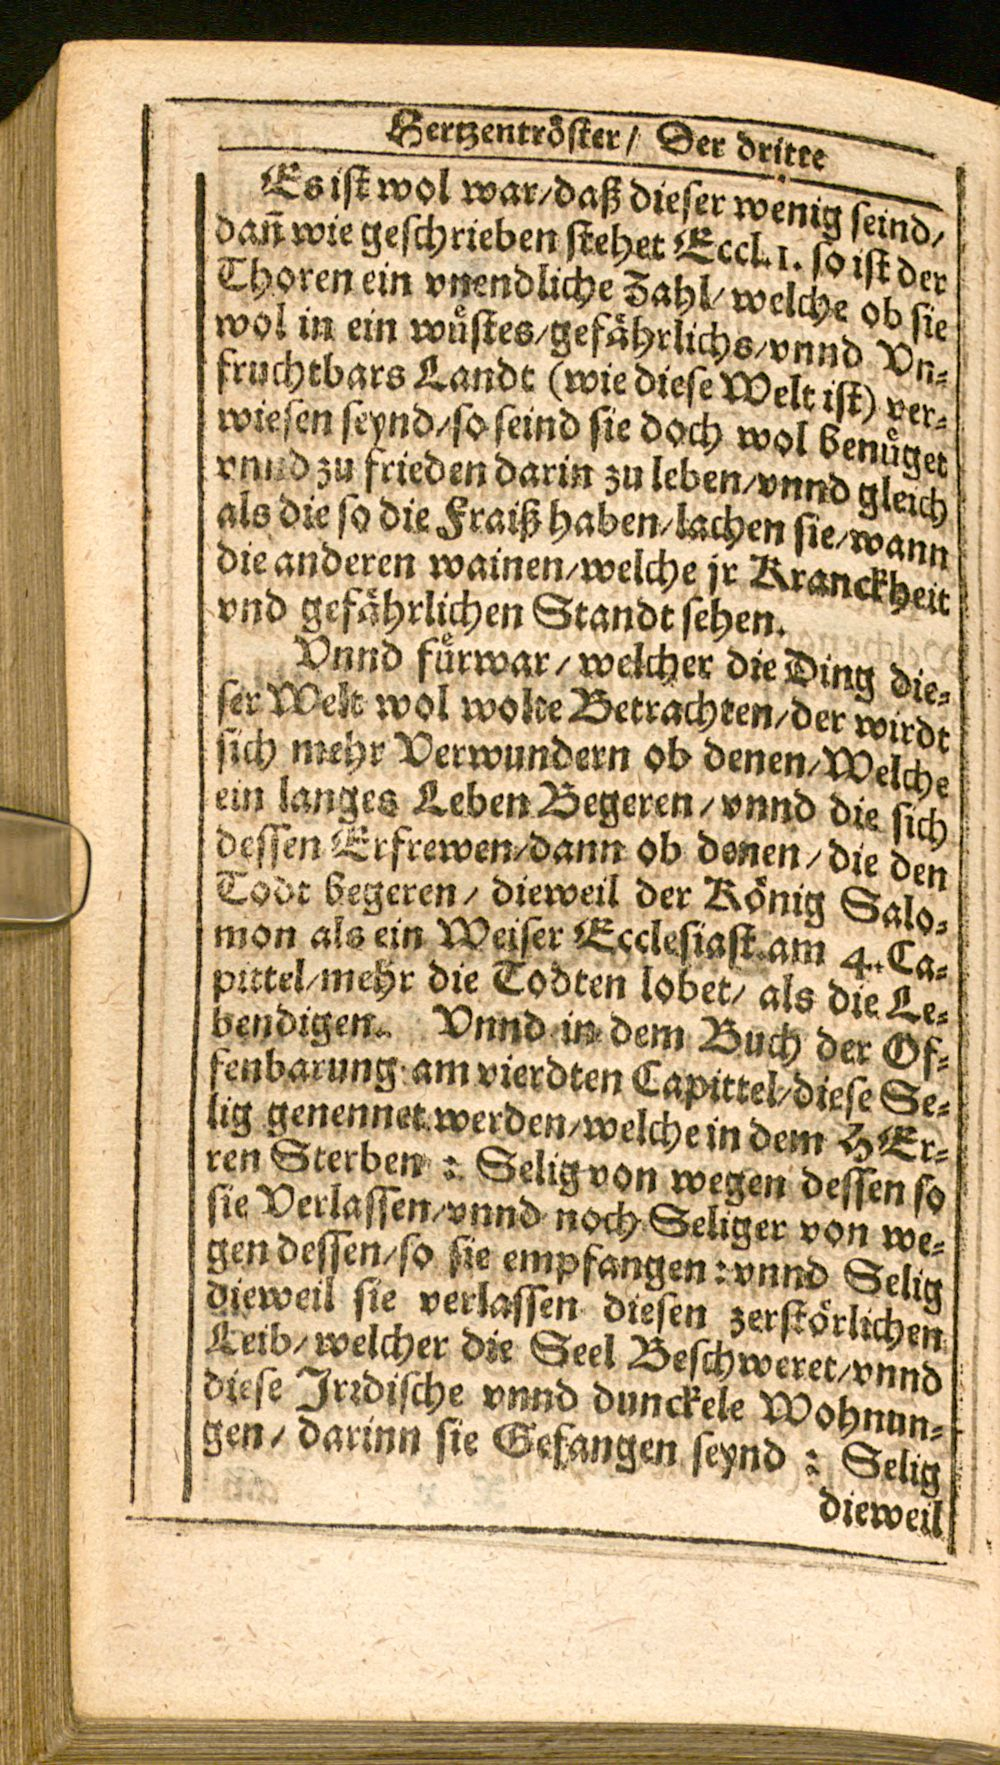 Hertzentröster/ Der dritte
Es ist wol war/daß dieser wenig seind/
dañ wie geschrieben stehet Eccl. 1. so ist der
Thoren ein vnendliche Zahl/ welche ob sie
wol in ein wuͤstes/gefaͤhrlichs/vnnd Vn-
fruchtbars Landt (wie diese Welt ist) ver-
wiesen seynd/so seind sie doch wol benuͤget
vnnd zu frieden darin zu leben/vnnd gleich
als die so die Fraiß haben/lachen sie/wann
die anderen wainen/welche jr Kranckheit
vnd gefaͤhrlichen Standt sehen.
Vnnd fuͤrwar/ welcher die Ding die-
ser Welt wol wolte Betrachten/der wirdt
sich mehr Verwundern ob denen/Welche
ein langes Leben Begeren/ vnnd die sich
dessen Erfrewen/dann ob denen/ die den
Todt begeren/ dieweil der Koͤnig Salo-
mon als ein Weiser Ecclesiast. am 4. Ca-
pittel/mehr die Todten lobet/ als die Le-
bendigen. Vnnd in dem Buch der Of-
fenbarung am vierdten Capittel/diese Se-
lig genennet werden/welche in dem HEr-
ren Sterben : Selig von wegen dessen so
sie Verlassen/vnnd noch Seliger von we-
gen dessen/so sie empfangen : vnnd Selig
dieweil sie verlassen diesen zerstoͤrlichen
Leib/ welcher die Seel Beschweret/vnnd
diese Jrꝛdische vnnd dunckele Wohnun-
gen/ darinn sie Gefangen seynd : Selig
dieweil